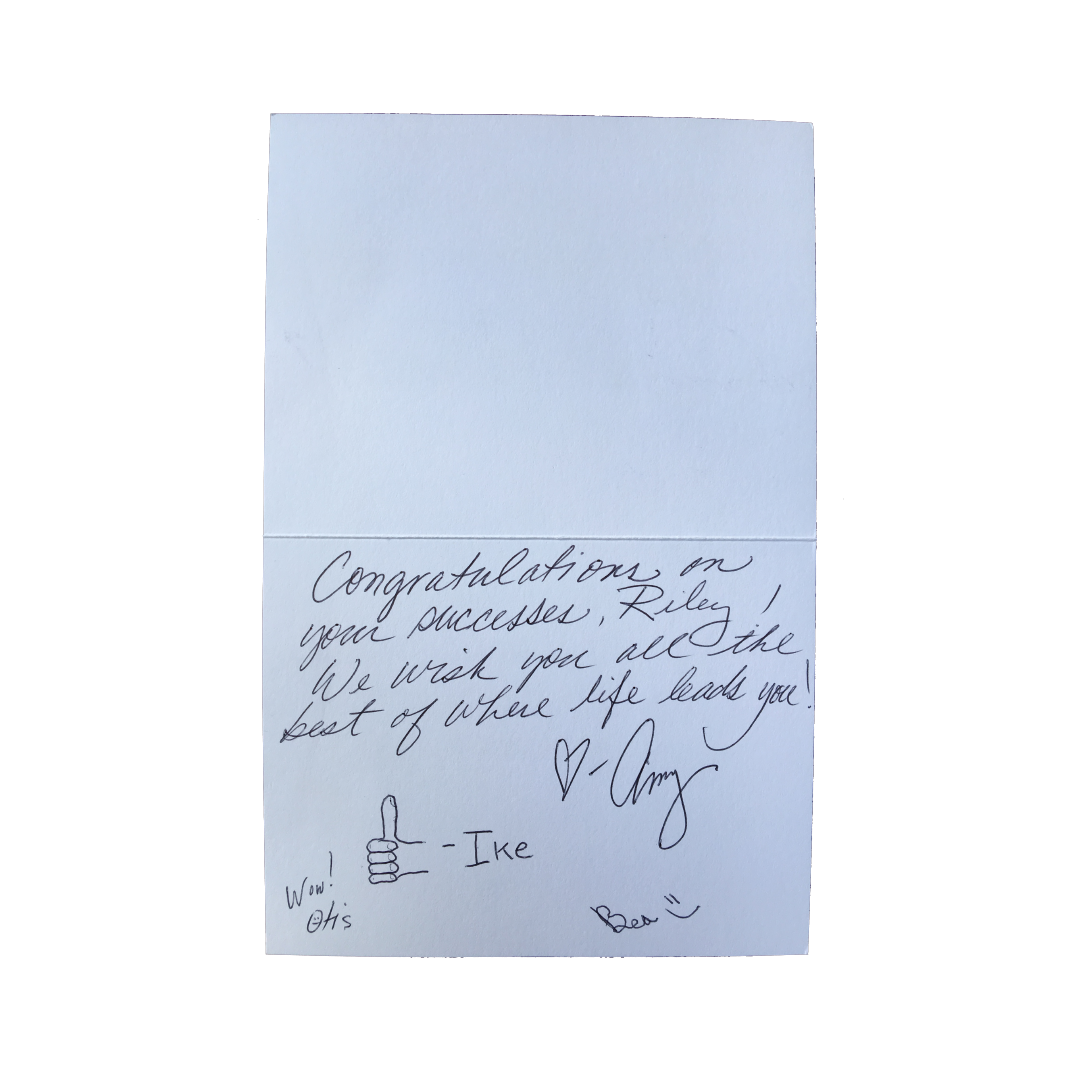 Congratulations on
your successes, Riley!
We wish you all the
best of where life leads you!
♡- Amy
- Ike
Wow!
Otis
Bea